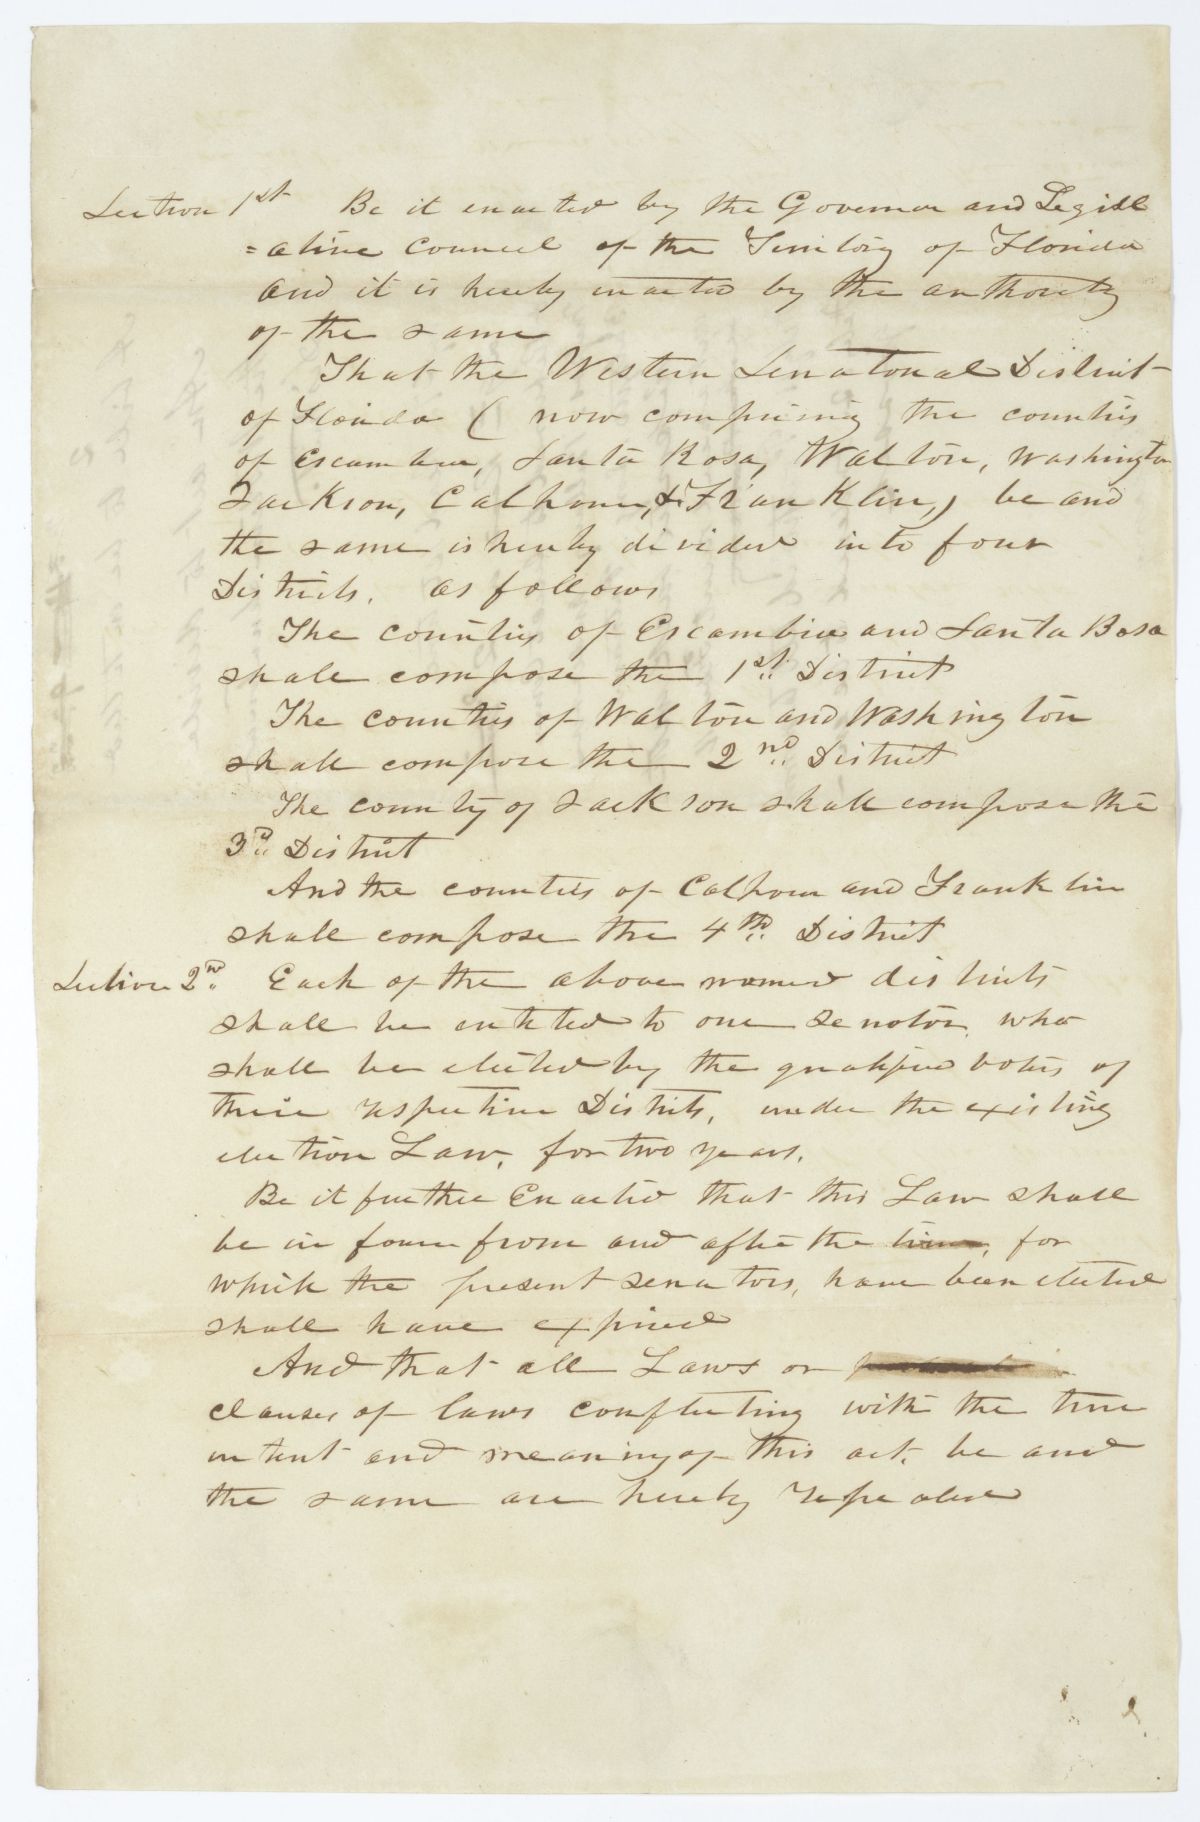 Section 1st Be it enacted by the Governor and Legisl
=ative Council of the Territory of Florida
and it is hereby enacted by the authority
of the same
That the Western Senatorial District
of Florida ( now comprising the counties
of Escambia, Santa Rosa, Walton, Washington
Jackson, Calhoun, & Franklin,) be and
the same is hereby divided into four
Districts. as follows
The counties of Escambia and Santa Rosa
shall compose the 1st District
The counties of Walton and Washington
shall compose the 2nd District
The county of Jackson shall compose the
3d District
And the counties of Calhoun and Franklin
shall compose the 4th District
Section 2nd Each of the above named districts
shall be entitled to one senator, who
shall be elected by the qualified voters of
their respective Districts, under the existing
election Law, for two years.
Be it further Enacted that this Law shall
be in force from and after the time, for
which the present senators, have been elected
shall have expired
And that all Laws or
clauses of laws conflicting with the true
intent and meaning of this act, be and
the same are hereby repealed